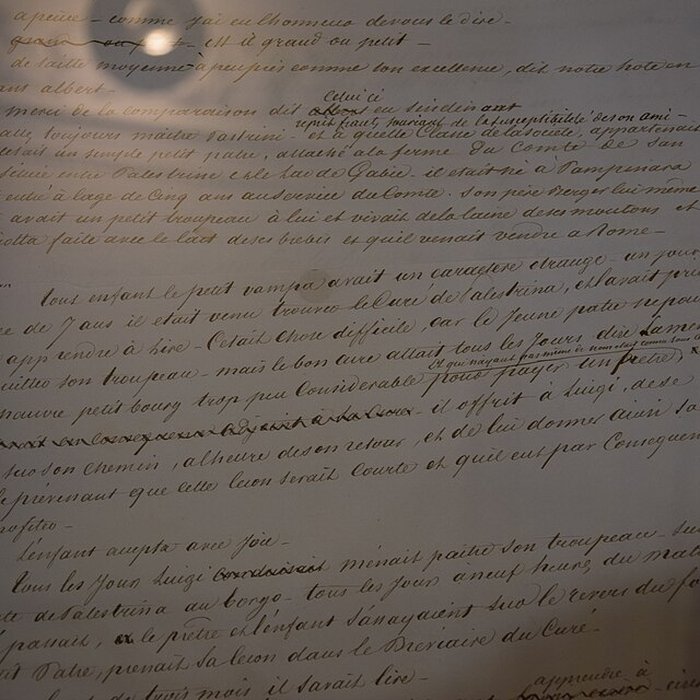 apeine - comme j'ai eu l'honneur de vous le dire -
grand ou petit - est il grand ou petit -
de taille moyenne à peu près comme son excellence, dit notre hote en
albert -
Celui ci
merci de la comparaison dit albert en s'inclinant
reprit franz, souriant de la susceptibilité de son ami -
toujours maitre Pastrini - et à quelle Classe de la société, appartenait
C'etait un simple petit patre, attaché a la ferme du Comte de San
située entre Palestrine et le lac de Gabri - il etait né à Pampinara
entré à l'age de Cinq ans au service du Comte. Son père Berger lui même
avait un petit troupeau à lui et vivait de la laine de ses moutons et
faite avec le lait de ses brebis et qu'il venait vendre a Rome -
tout enfant le petit vampa avait un caractère etrange - un jour
de 7 ans il etait venu trouver le Curé de Palestrina, et l'avait prié
apprendre à lire - C'etait chose difficile, car le Jeune patre ne pouvait
quitter son troupeau - mais le bon cure allait tous les Jours dire la messe
et qui n'ayant pas même de nom etait connu sous
pauvre petit bourg trop peu Considerable pour payer un prêtre,
il offrit à Luigi, de se
sur son chemin, a l'heure de son retour, et de lui donner ainsi sa
le prévenant que cette lecon serait Courte et qu'il eut par Consequent
profiter -
L'enfant accepta avec Joie -
Tous les Jours Luigi conduisait menait paitre son troupeau - sur
de Palestrina au borgo - tous les Jours a neuf heures du matin
passait, et le prêtre et l'enfant s'assayaient sur le revers du fossé
Patre, prenait sa lecon dans le Breviaire du Curé -
de trois mois il savait lire -
apprendre à